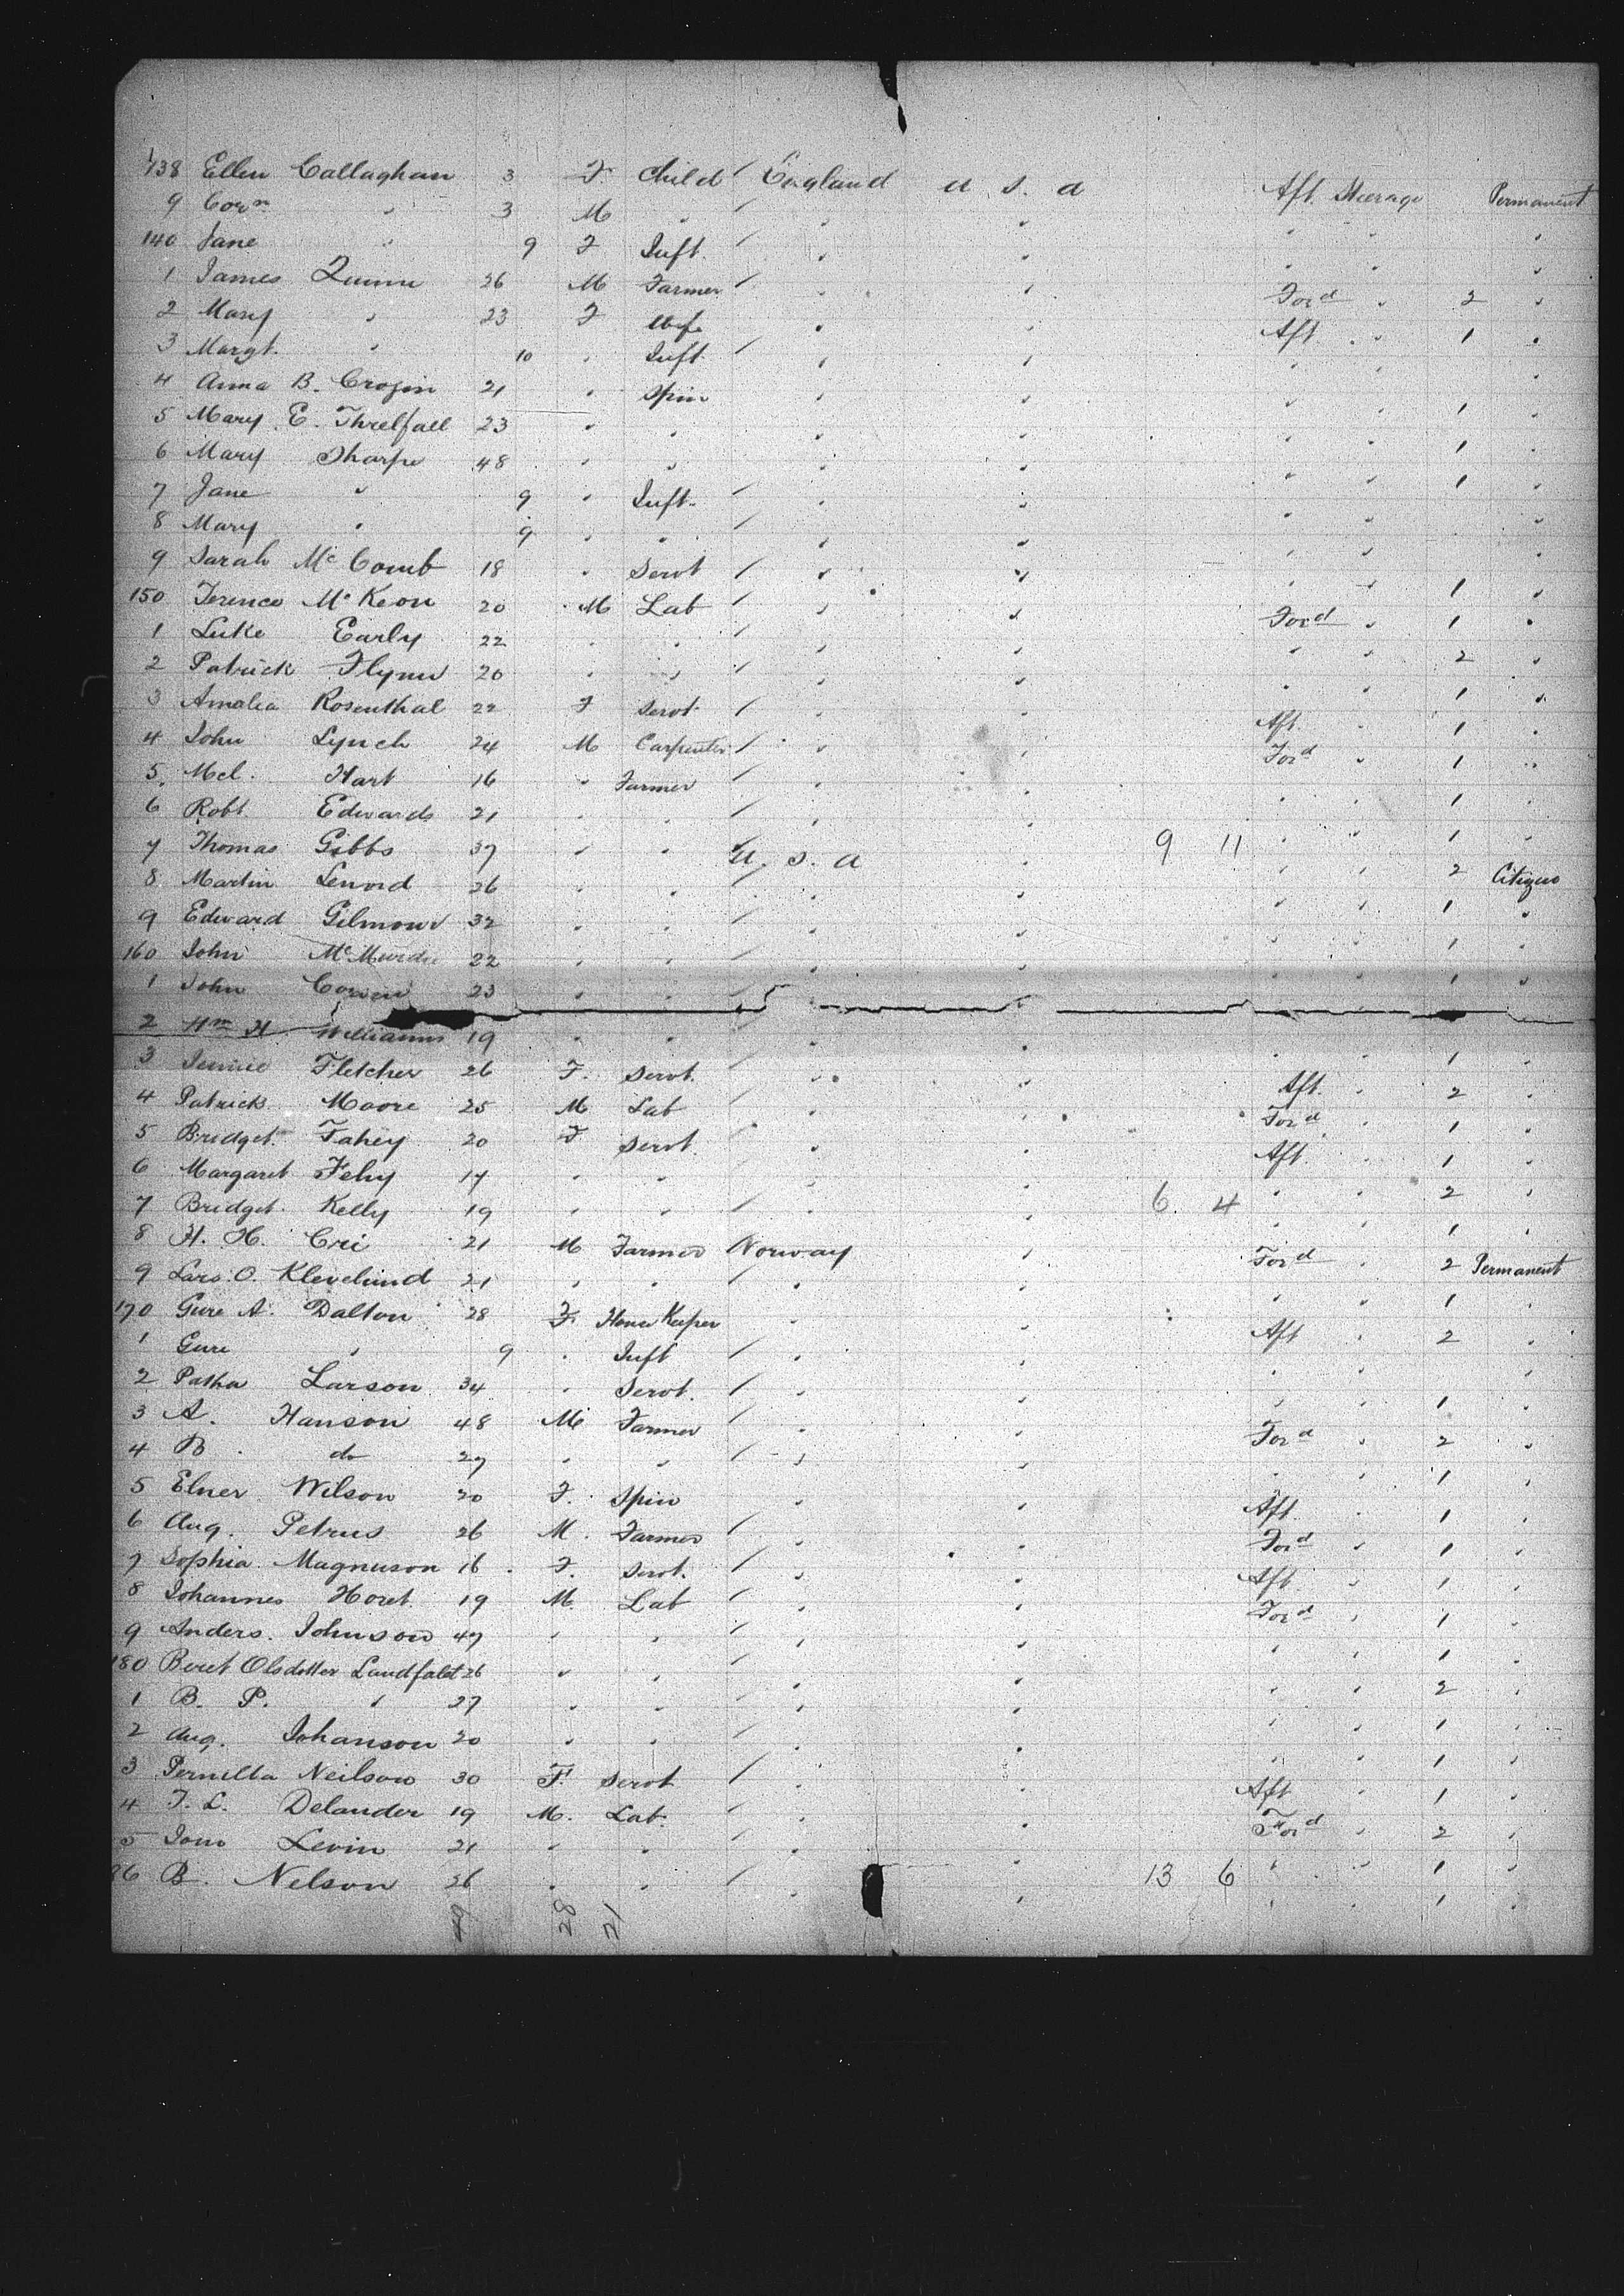 138 Ellen Callaghan 3 F Child England U S A Aft Steerage Permanent
9 Corn " 3 M " " " " " "
140 Jane " 9 F Inft. " " " " "
1 James Quinn 26 M Farmer " " Ford " 2 "
2 Mary " 23 F Wife " " Aft. " 1 "
3 Margt. " 10 " Inft. " " " " "
4 Anna B. Crogin 21 " Spin " " " " 1 "
5 Mary E. Threlfall 23 " " " " " " 1 "
6 Mary Tharpe 48 " " " " " " 1 "
7 Jane " 9 " Inft. " " " " "
8 Mary " 9 " " " " " " "
9 Sarah McComb 18 " Servt " " " " 1 "
150 Terence McKeon 20 M Lab " " Ford " 1 "
1 Luke Early 22 " " " " " " 2 "
2 Patrick Flynn 20 " " " " " " 1 "
3 Amalia Rosenthal 22 F Servt. " " Aft. 1 "
4 John Lynch 24 M Carpenter " " Ford " 1 "
5 Mcl. Hart 16 " Farmer " " " " 1 "
6 Robt Edwards 21 " " " " " " 1 "
7 Thomas Gibbs 37 " " U. S. A " 9 11 " " 2 Citizen
8 Martin Lenord 26 " " " " " " 1 "
9 Edward Gilmour 32 " " " " " " 1 "
160 John McMurdie 22 " " " " " " 1 "
1 John Cowen 23 " "
2 Wm H Williams 19 " " " " " " 1 "
3 Jennie Fletcher 26 F. Servt. " " Aft. " 2 "
4 Patrick Moore 25 M Lab " " Ford " 1 "
5 Bridget Fahey 20 F Servt. " " Aft. " 1 "
6 Margaret Fehy 17 " " " " " " 2 "
7 Bridget Kelly 19 " " " " 6 4 " " 1 "
8 H. H. Cri 21 M Farmer Norway " Ford " 2 Permanent
9 Lars O. Klevelund 21 " " " " " " 1 "
170 Gure A. Dalton 28 F. House Keeper " " Aft " 2 "
1 Gure " 9 " Inft " " " " "
2 Larson 34 " Servt. " " " " 1 "
3 A. Hanson 48 M Farmer " " Ford " 2 "
4 B. do 27 " " " " " " 1 "
5 Elner Wilson 20 F. Spin " " Aft. " 1 "
6 Aug. Petrus 26 M. Farmer " " Ford " 1 "
7 Sophia Magnuson 16 F. Servt. " " Aft. " 1 "
8 Johannes Horet 19 M. Lab " " Ford " 1 "
9 Anders. Johnson 47 " " " " " " 1 "
180 Beret Olsdotter Landfalet 26 " " " " " " 2 "
1 B. P. " 27 " " " " " " 1 "
2 Aug. Johanson 20 " " " " " " 1 "
3 Pernilla Neilson 30 F. Servt " " Aft " 1 "
4 J. L. Delander 19 M. Lab. " " Ford " 2 "
5 Levin 21 " " " " " " 1 "
86 B. Nelson 26 " " " " 13 6 " " 1 "
49 28 21